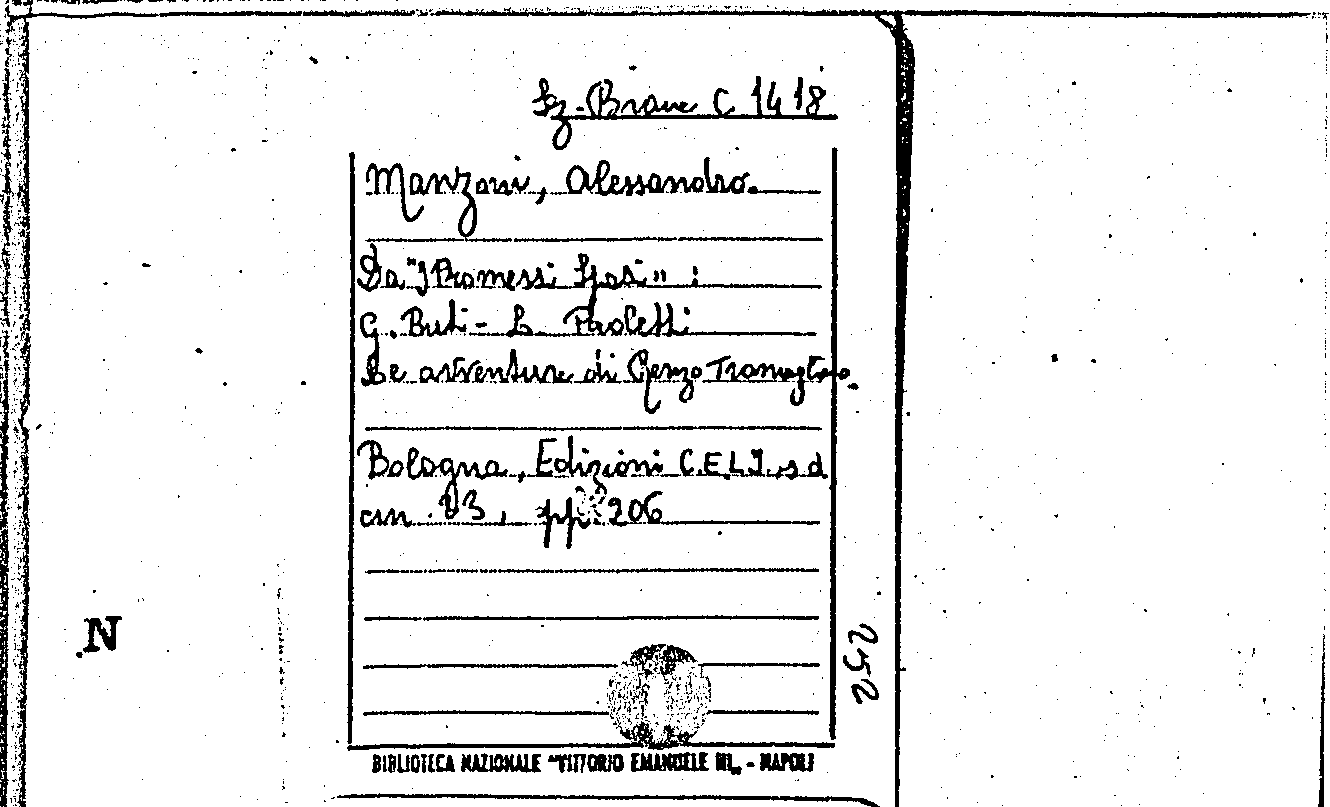 Sz-Brane C 1418
Manzoni, Alessandro.
Da "I Promessi Sposi" :
G. Buti - L. Paoletti
Le avventure di Renzo Tramaglino.
Bologna, Edizioni C.E.L.I., s d
cm. 23, pp. 206
252
N
BIBLIOTECA NAZIONALE "VITTORIO EMANUELE III„ - NAPOLI